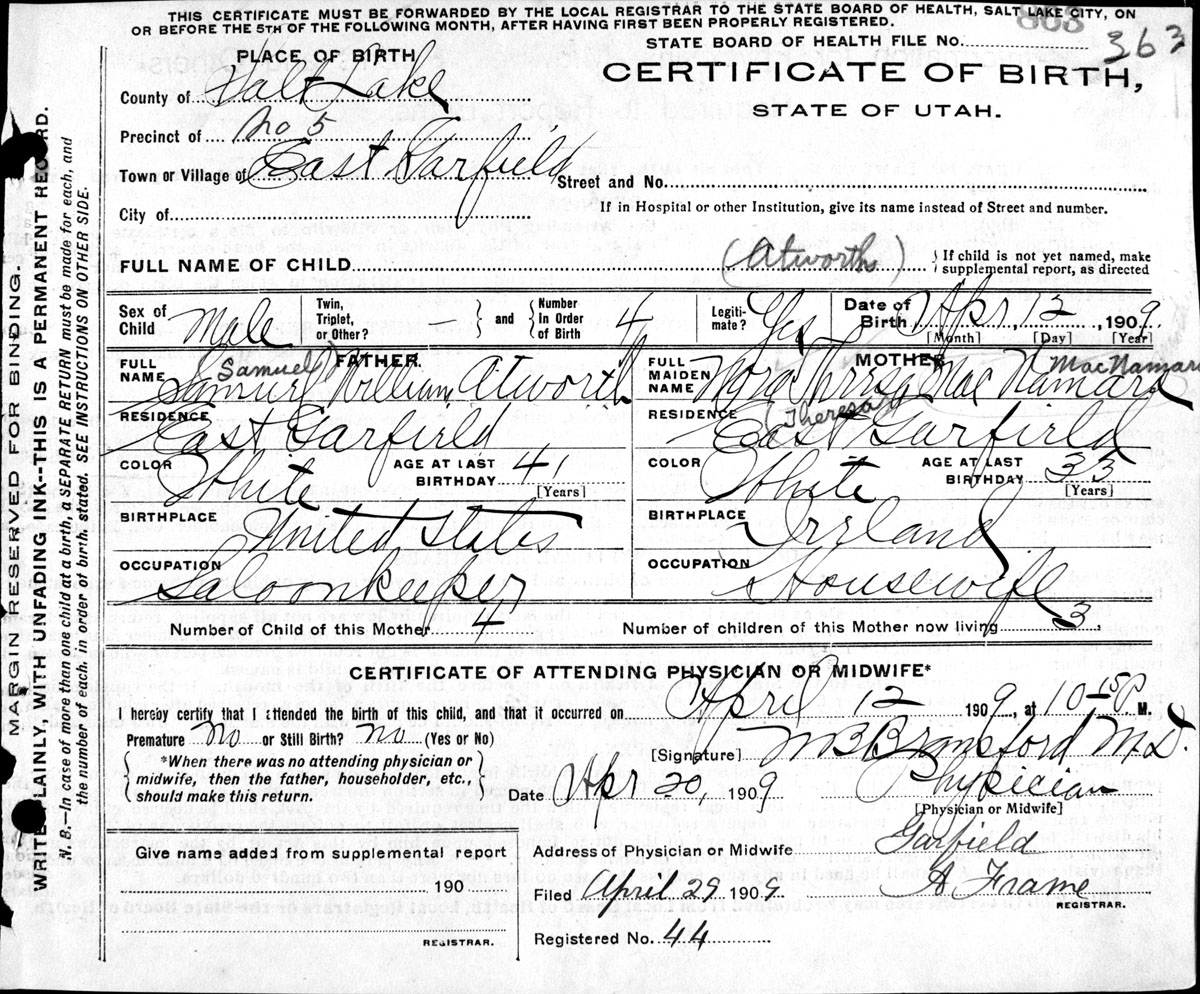 THIS CERTIFICATE MUST BE FORWARDED BY THE LOCAL REGISTRAR TO THE STATE BOARD OF HEALTH, SALT LAKE CITY, ON
OR BEFORE THE 5TH OF THE FOLLOWING MONTH, AFTER HAVING FIRST BEEN PROPERLY REGISTERED.
868
PLACE OF BIRTH
STATE BOARD OF HEALTH FILE No. 363
County of Salt Lake
CERTIFICATE OF BIRTH,
STATE OF UTAH.
Precinct of No 5
Town or Village of East Garfield Street and No.
City of
If in Hospital or other Institution, give its name instead of Street and number.
FULL NAME OF CHILD (Atworth) If child is not yet named, make supplemental report, as directed
Sex of Child Male Twin, Triplet, or Other? — and Number In Order of Birth 4 Legiti-mate? Yes Date of Birth Apr, 12, 1909
[Month] [Day] [Year]
FATHER
FULL NAME Samuel William Atworth
Samuel
MOTHER
FULL MAIDEN NAME Nora Theresa MacNamara
MacNamara
(Theresa)
RESIDENCE East Garfield
RESIDENCE East Garfield
COLOR White AGE AT LAST BIRTHDAY 41 [Years]
COLOR White AGE AT LAST BIRTHDAY 33 [Years]
BIRTHPLACE United States
BIRTHPLACE Ireland
OCCUPATION Saloonkeeper
OCCUPATION Housewife
Number of Child of this Mother 4 Number of children of this Mother now living 3
CERTIFICATE OF ATTENDING PHYSICIAN OR MIDWIFE*
I hereby certify that I attended the birth of this child, and that it occurred on April 12 1909, at 10 15 P. M.
Premature No or Still Birth? No (Yes or No)
[Signature] M B Bransford M.D.
*When there was no attending physician or
midwife, then the father, householder, etc.,
should make this return.
Date Apr 20, 1909
Physician
[Physician or Midwife]
Give name added from supplemental report
190
REGISTRAR.
Address of Physician or Midwife Garfield
Filed April 29 1909. A Frame
REGISTRAR.
Registered No. 44
MARGIN RESERVED FOR BINDING.
WRITE PLAINLY, WITH UNFADING INK--THIS IS A PERMANENT RECORD.
N. B.—In case of more than one child at a birth, a SEPARATE RETURN must be made for each, and
the number of each, in order of birth, stated. SEE INSTRUCTIONS ON OTHER SIDE.